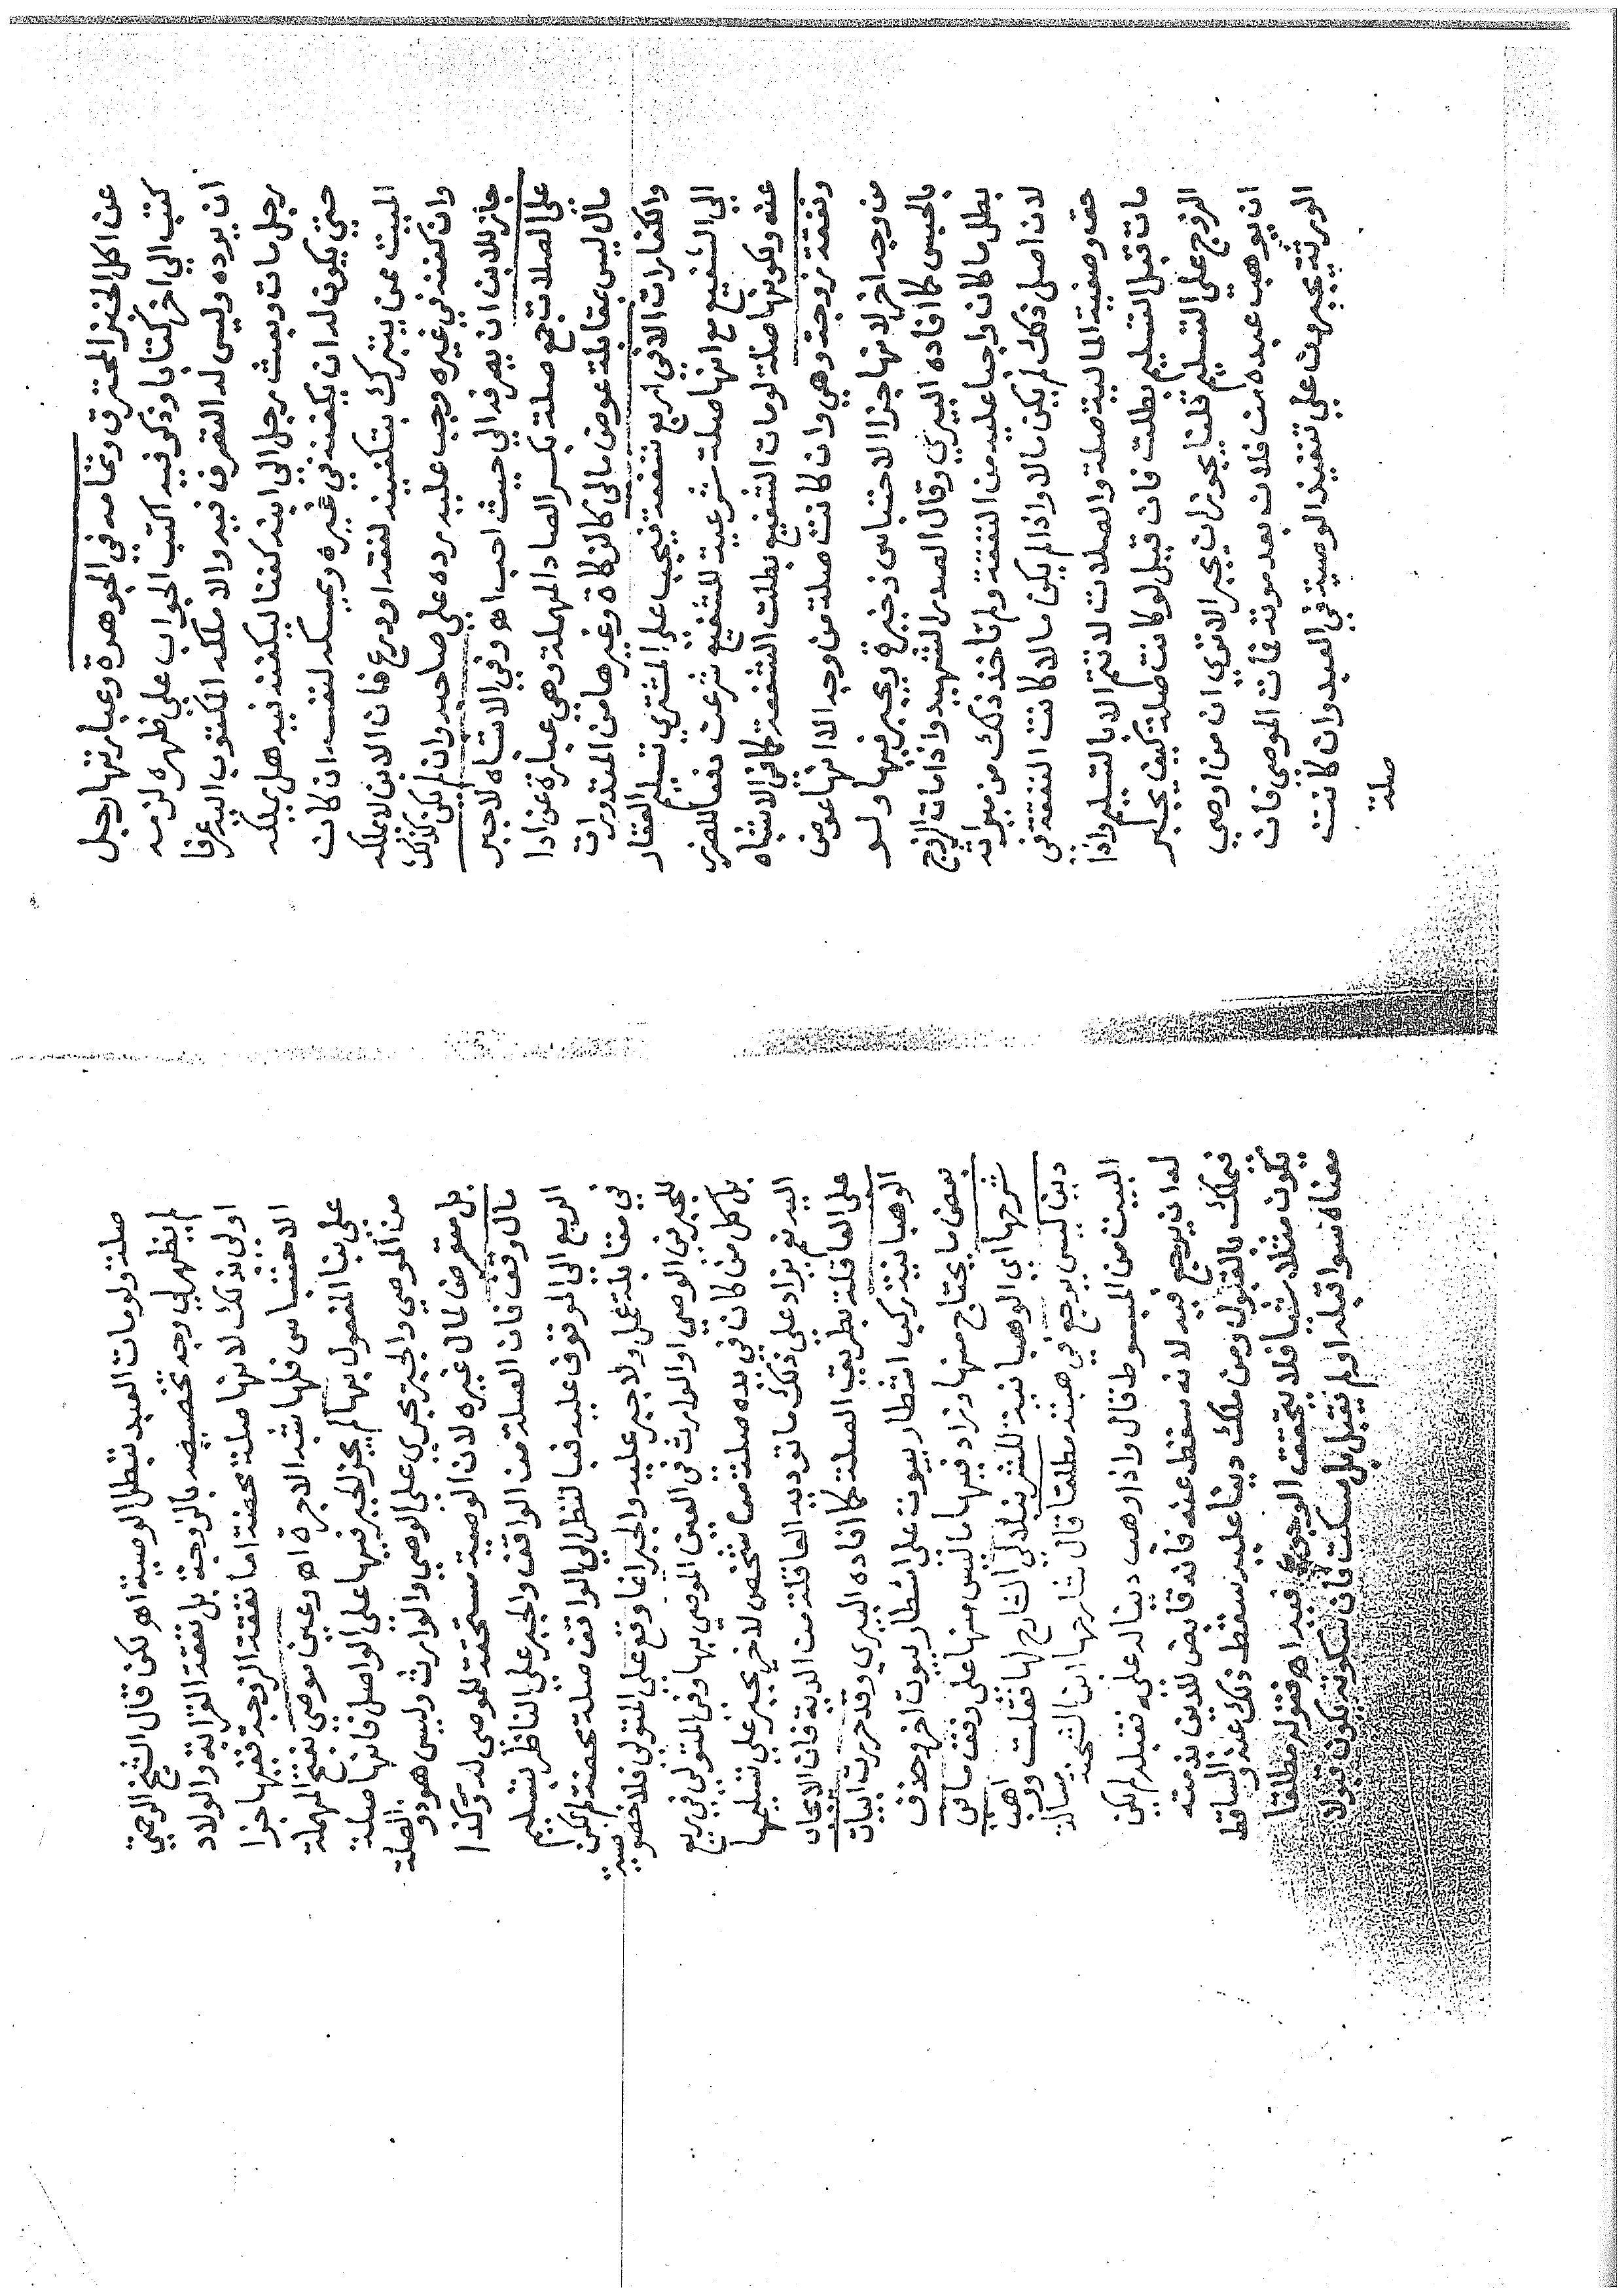 عن اكل الخبز المحترق وتمامه في الجوهرة وعبارتها رجل
كتب الي اخر كتابا وذكر فيه اكتب الجواب علي ظهره لزمه
ان يرده وليس له التصرف فيه والا ملكه المكتوب اليه عرفا
رجل مات وبعث رجل الي ابنه كفنا ليكفنه فيه هل يملكه
حتي يكون له ان يكفنه في غيره ويمسكه لنفسه ان كان
الميت ممن يتبرك بتكفينه لفقه او ورع فان الابن لا يملكه
وان كفنه في غيره وجب عليه رده علي صاحبه وان لم يكن كذلك
جاز للابن ان يصرفه الي حيث احب اه وفي الاشباه لا جبر
علي الصلات جمع صلة بكسر الصاد المهملة وهي عبارة عن ادا
مال ليس بمقابلة عوض مالي كالزكاة وغيرها من المقدورات
والكفارات الا في اربع شفعة فيجب علي المشتري تسليم العقار
الي الشفيع مع انها صلة شرعية للشفيع شرعت دفعا للضرر
عنه ولكونها صلة لو مات الشفيع بطلت الشفعة كما في الاشباه
ونفقة زوجة وهي وان كانت صلة من وجه الا انها عوض
من وجه اخر لانها جزا الاحتباس ذخيرة ويجبر فيها ولو
بالحبس كما افاده البيري وقال الصدر الشهيد واذا مات الزوج
بطل ما كان واجبا عليه من النفقة ولم تاخذ ذلك من ميراثه
لان اصل ذلك لم يكن مالا واذا لم يكن مالا كانت النفقة في
حقه وصفية المالية صلة والصلات لا تتم الا بالتسليم واذا
مات قبل التسليم بطلت فان قيل لو كانت صلة كيف يجبر
الزوج علي التسليم قلنا يجوز ان يجبر الا تري ان من اوصي
ان يوهب عبده من فلان بعد موته فمات الموصي فان
الورثة يجبرون علي تنفيذ الوصية في العبد وان كانت
صلة
صلة ولو مات العبد تبطل الوصية اه لكن قال الشيخ الرحمتي
لم يظهر لي وجه تخصيصه بالزوجة بل نفقة القرابة والولاد
اولي بذلك لانها صلة محضة اما نفقة الزوجة ففيها جزا
الاحتباس فلها شبه الاجرة اه وعين موصي بفتح المهملة
علي بنا المفعول بها لم يجز الجبر فيها علي الواصل فانها صلة
من الموصي والجبر يجري علي الوصي والوارث وليس هو ذو الصلة
بل متعرض لمال غيره لان الوصية مستحقة للموصي له وكذا
مال وقف فان الصلة من الواقف والجبر علي الناظر بتسليم
الريع الي الموقوف عليه فبالنظر الي الواقف صلة محضة لم يكن
في مقابلة عمل ولا جبر عليه والجبر انما وقع علي المتولي فلا خصوصية
للجبر في الوصي او الوارث في العين الموصي بها وفي المتولي في ريع
بل كل من كان في يده صلة من شخص لاخر يجبر علي تسليمها
اليه نعم يزاد علي ذلك ما توديه العاقلة من الدية فان الايجاب
علي العاقلة بطريق الصلة كما افاده البيري وقد حررت ابيات
الوهبانية تركب اشطار بيوت علي اشطار بيوت اخر وحذف
بعض ما يحتاج منها وزاد فيها ما ليس منها علي وفق ما في
شرحها اي الوهبانية للشرنبلالي الشارح لها فقلت وواهب
دين ليس يرجع في هبته مطلقا قال شارحها ابن الشحنة مسالة
البيت من المبسوط قال واذا وهب دينا له علي فقبله لم يكن
له ان يرجع فيه لانه سقط عنه فانه قابض للدين بذمته
فملك بالقبول ومن ملك دينا عليه سقط ذلك عنه والساقط
يكون متلاشيا فلا يتحقق الرجوع فيه اه فقوله مطلقا
معناه سوا قبله او لم يقبل بل سكت فان سكوته يكون قبولا